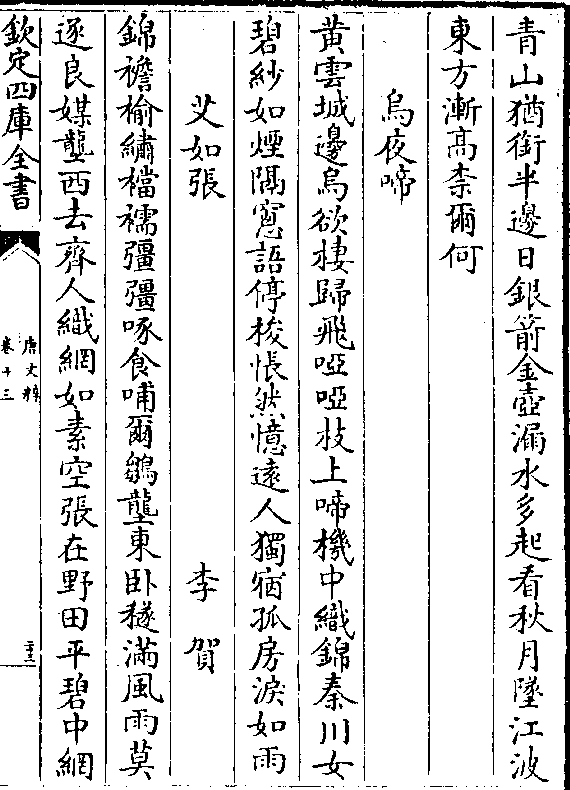 青山猶銜半邊日銀箭金壺漏水多起看秋月墜江波
東方漸髙柰爾何
烏夜啼
黄雲城邊烏欲棲歸飛啞啞枝上啼機中織錦秦川女
碧紗如煙隔窓語停梭悵然憶遠人獨宿孤房淚如雨
艾如張　李賀
錦襜榆繡襠襦彊彊啄食哺爾鶵壟東卧穟滿風雨莫
逐良媒壟西去齊人織網如素空張在野田平碧中網
欽定四庫全書
唐文粹
卷十三
二十三